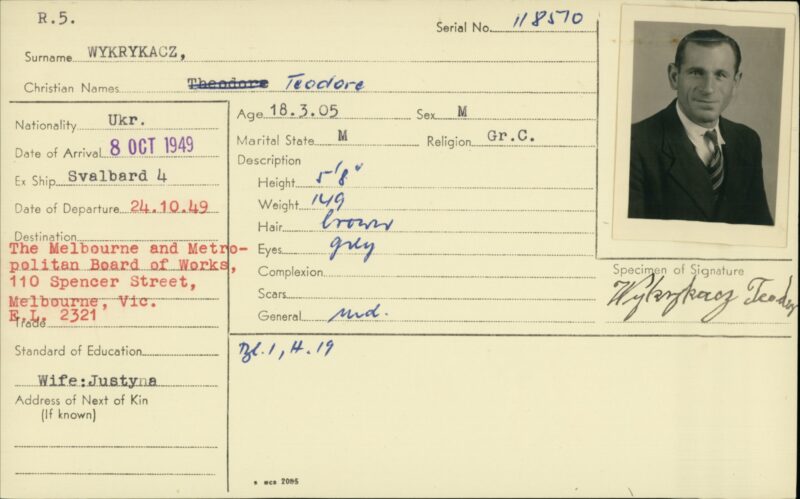 R.5.
Serial No. 118570
Surname WYKRYKACZ,
Christian Names Theodore Teodore
Nationality Ukr.
Date of Arrival 8 OCT 1949
Ex Ship Svalbard 4
Date of Departure 24.10.49
Destination
The Melbourne and Metro-
politan Board of Works,
110 Spencer Street,
Melbourne, Vic.
E.L. 2321
Trade
Standard of Education
Wife:Justyna
Address of Next of Kin
(If known)
Age 18.3.05 Sex M
Marital State M Religion Gr.C.
Description
Height 5'8"
Weight 149
Hair brown
Eyes grey
Complexion
Scars
General md.
Bl.1, H.19
Specimen of Signature
Wykrykacz Teodor
2085